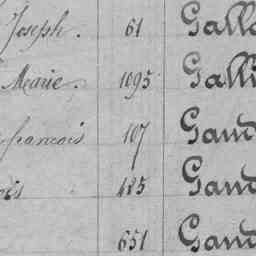 Joseph. 61 Gall
Marie. 1095 Galli
francois 107 Gand
485 Gand
651 Gand